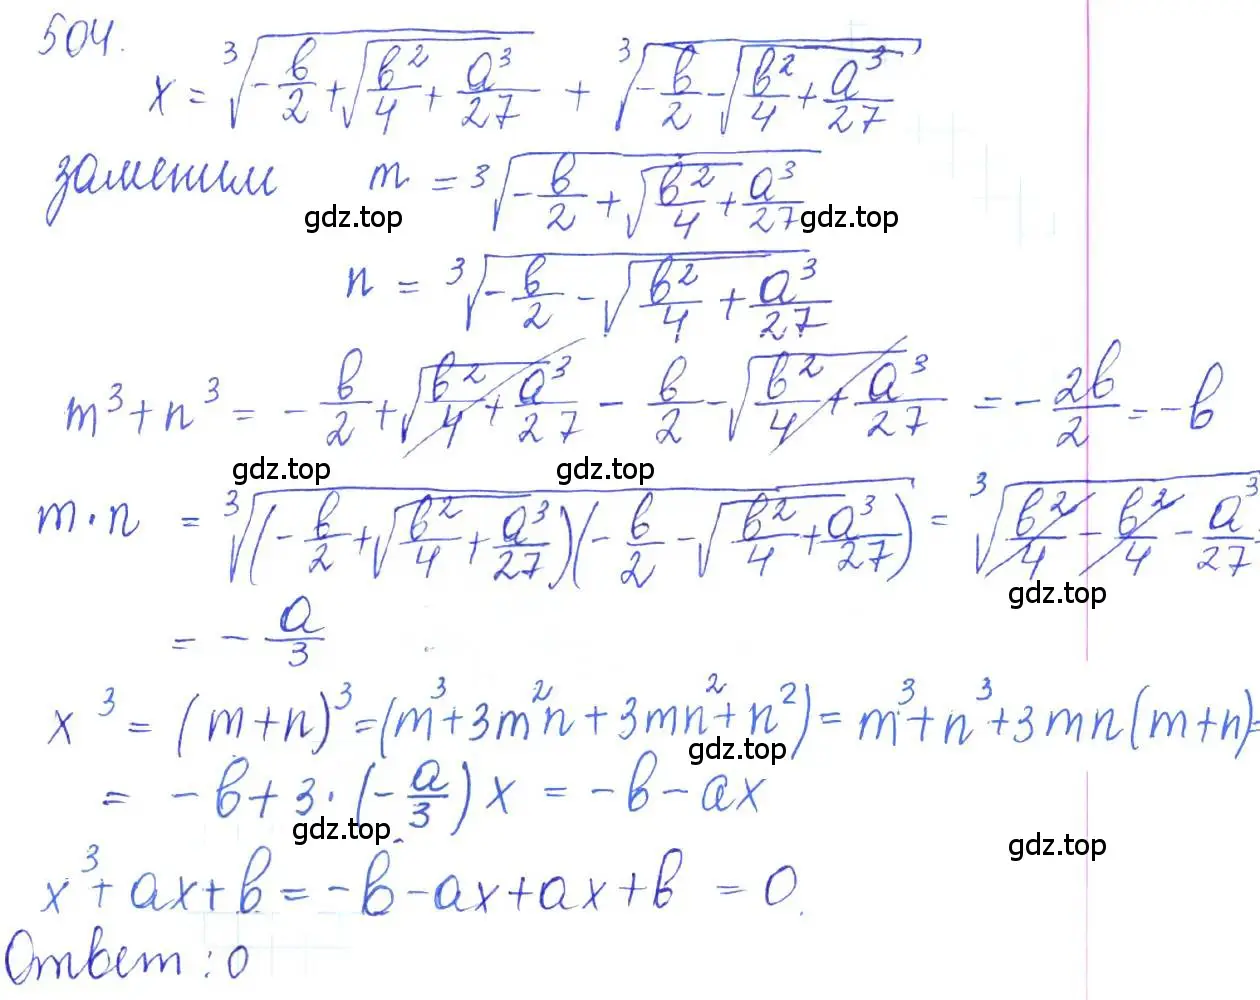 504.
x = ∛(-в/2 + √(в²/4 + a³/27)) + ∛(-в/2 - √(в²/4 + a³/27))
заменим m = ∛(-в/2 + √(в²/4 + a³/27))
gdz.top gdz.top
n = ∛(-в/2 - √(в²/4 + a³/27))
m³ + n³ = -в/2 + √(в²/4 + a³/27) - в/2 - √(в²/4 + a³/27) = -2в/2 = -в
gdz.top gdz.top
m · n = ∛((-в/2 + √(в²/4 + a³/27))(-в/2 - √(в²/4 + a³/27))) = ∛(в²/4 - в²/4 - a³/27) =
gdz.top
= -a/3
x³ = (m+n)³ = (m³ + 3m²n + 3mn² + n²) = m³ + n³ + 3mn(m+n) =
gdz.top
= -в + 3 · (-a/3)x = -в - ax
gdz.top gdz.top
x³ + ax + в = -в - ax + ax + в = 0.
Ответ: 0